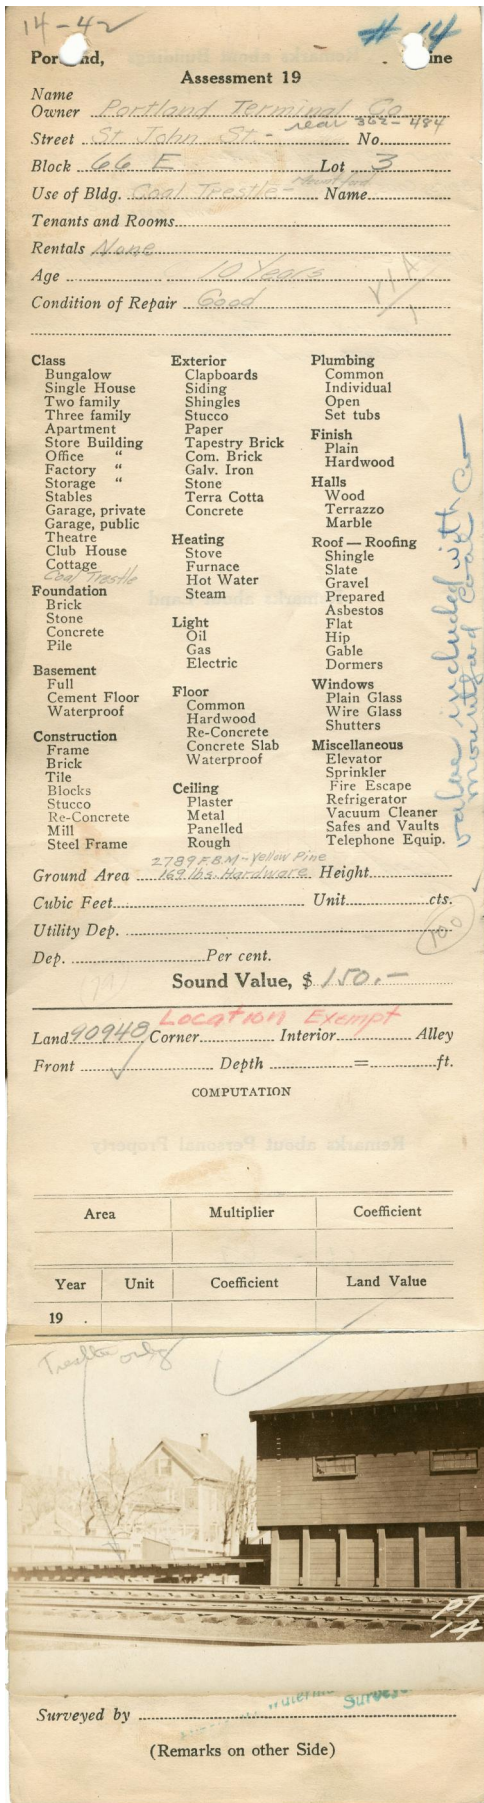 14-42
# 14
Portland, Maine
Assessment 19
Name
Owner Portland Terminal Co
Street St. John St. - rear 362-484 No.
Block 66 E Lot 3
Use of Bldg. Coal Trestle - Mountford Name
Tenants and Rooms
Rentals None
Age 10 Years
Condition of Repair Good
Class
Bungalow
Single House
Two family
Three family
Apartment
Store Building
Office "
Factory "
Storage "
Stables
Garage, private
Garage, public
Theatre
Club House
Cottage
Coal Trestle
Foundation
Brick
Stone
Concrete
Pile
Basement
Full
Cement Floor
Waterproof
Construction
Frame
Brick
Tile
Blocks
Stucco
Re-Concrete
Mill
Steel Frame
Exterior
Clapboards
Siding
Shingles
Stucco
Paper
Tapestry Brick
Com. Brick
Galv. Iron
Stone
Terra Cotta
Concrete
Heating
Stove
Furnace
Hot Water
Steam
Light
Oil
Gas
Electric
Floor
Common
Hardwood
Re-Concrete
Concrete Slab
Waterproof
Ceiling
Plaster
Metal
Panelled
Rough
Plumbing
Common
Individual
Open
Set tubs
Finish
Plain
Hardwood
Halls
Wood
Terrazzo
Marble
Roof — Roofing
Shingle
Slate
Gravel
Prepared
Asbestos
Flat
Hip
Gable
Dormers
Windows
Plain Glass
Wire Glass
Shutters
Miscellaneous
Elevator
Sprinkler
Fire Escape
Refrigerator
Vacuum Cleaner
Safes and Vaults
Telephone Equip.
value included with
Mountford Coal Co
2789 F.B.M - Yellow Pine
Ground Area 169 lbs. Hardware Height
Cubic Feet Unit cts.
Utility Dep. 100
Dep. Per cent.
Sound Value, $ 150.-
Location Exempt
Land 90948 Corner Interior Alley
Front Depth = ft.
COMPUTATION
Area Multiplier Coefficient
Year Unit Coefficient Land Value
19 .
Trestle only
PT
14
Surveyed by
(Remarks on other Side)